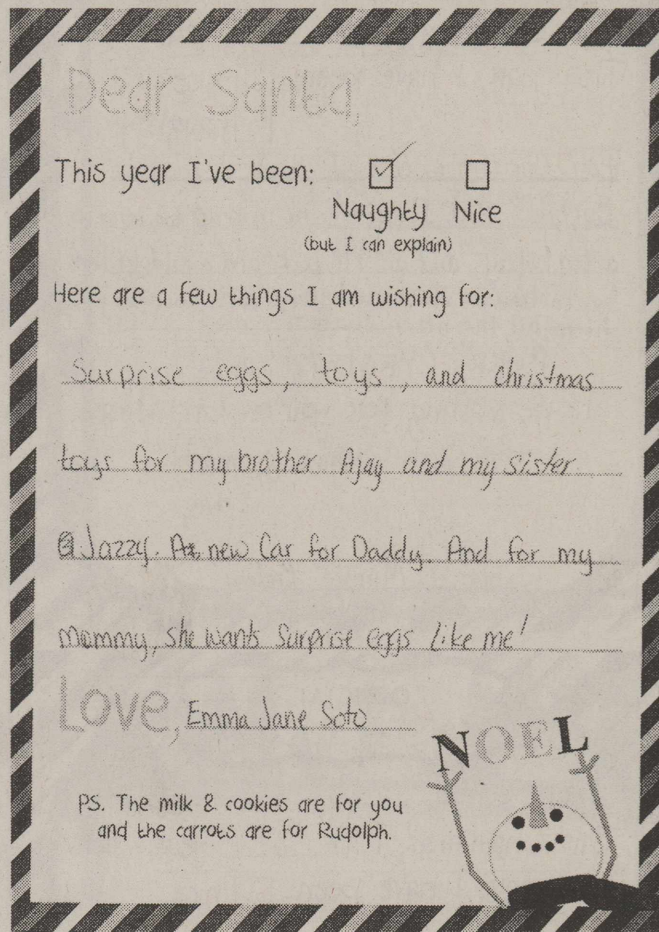 Dear Santa,
This year I've been:
Naughty Nice
(but I can explain)
Here are a few things I am wishing for:
Surprise eggs, toys, and christmas
toys for my brother Ajay and my sister
Jazzy. A new Car for Daddy. And for my
mommy, she wants Surprise eggs like me!
Love, Emma Jane Soto
NOEL
PS. The milk & cookies are for you
and the carrots are for Rudolph.